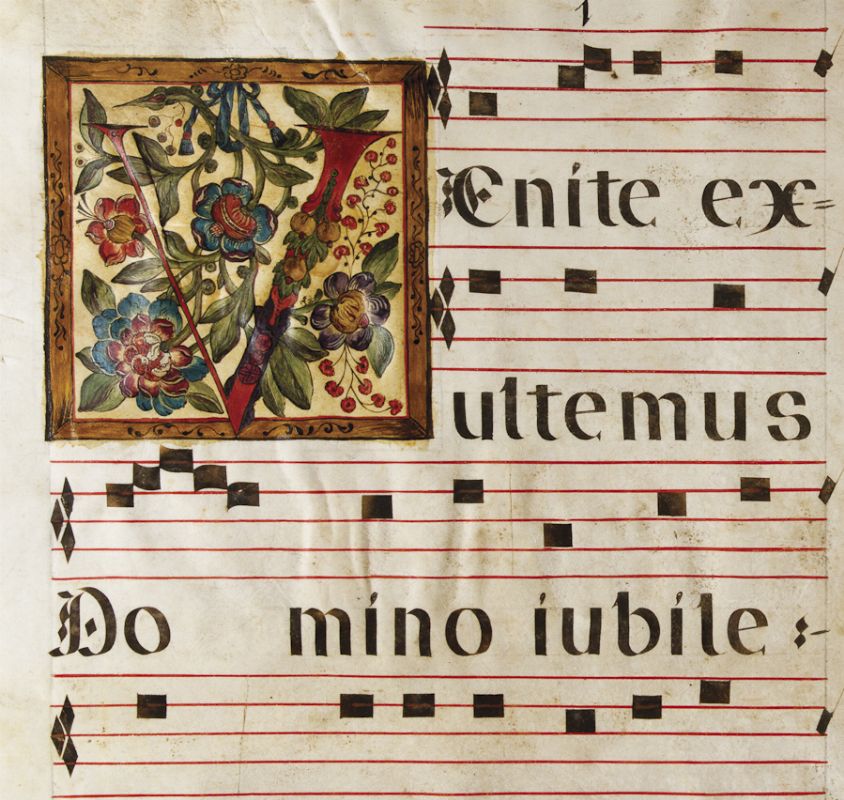 VEnite ex=
ultemus
Domino iubile:-